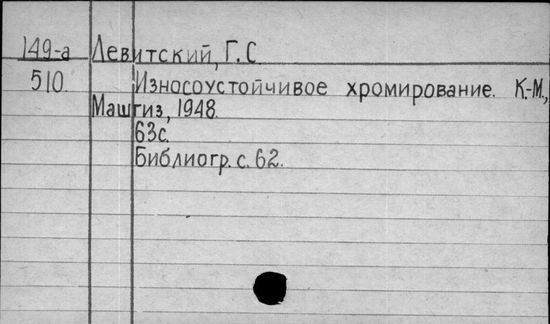 149-а Левитский, Г. С
510. Износоустойчивое хромирование. К.-М.,
Машгиз, 1948.
63с.
Библиогр. с. 62.